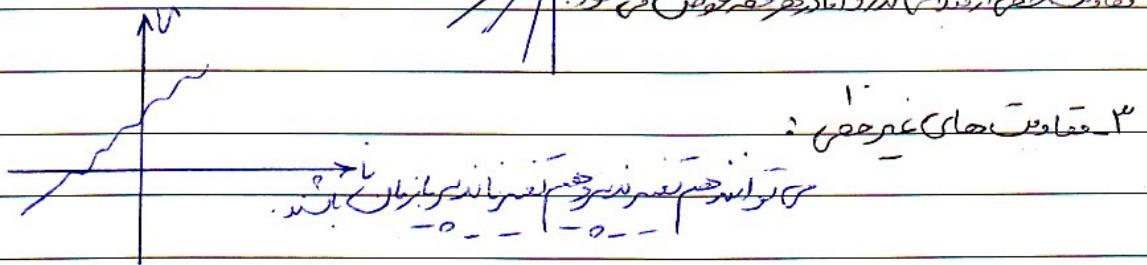 v
۳_مقاومت‌های غیرخطی :
i
می توانند هم تغییرپذیر و هم تغییرناپذیر با زمان باشند.